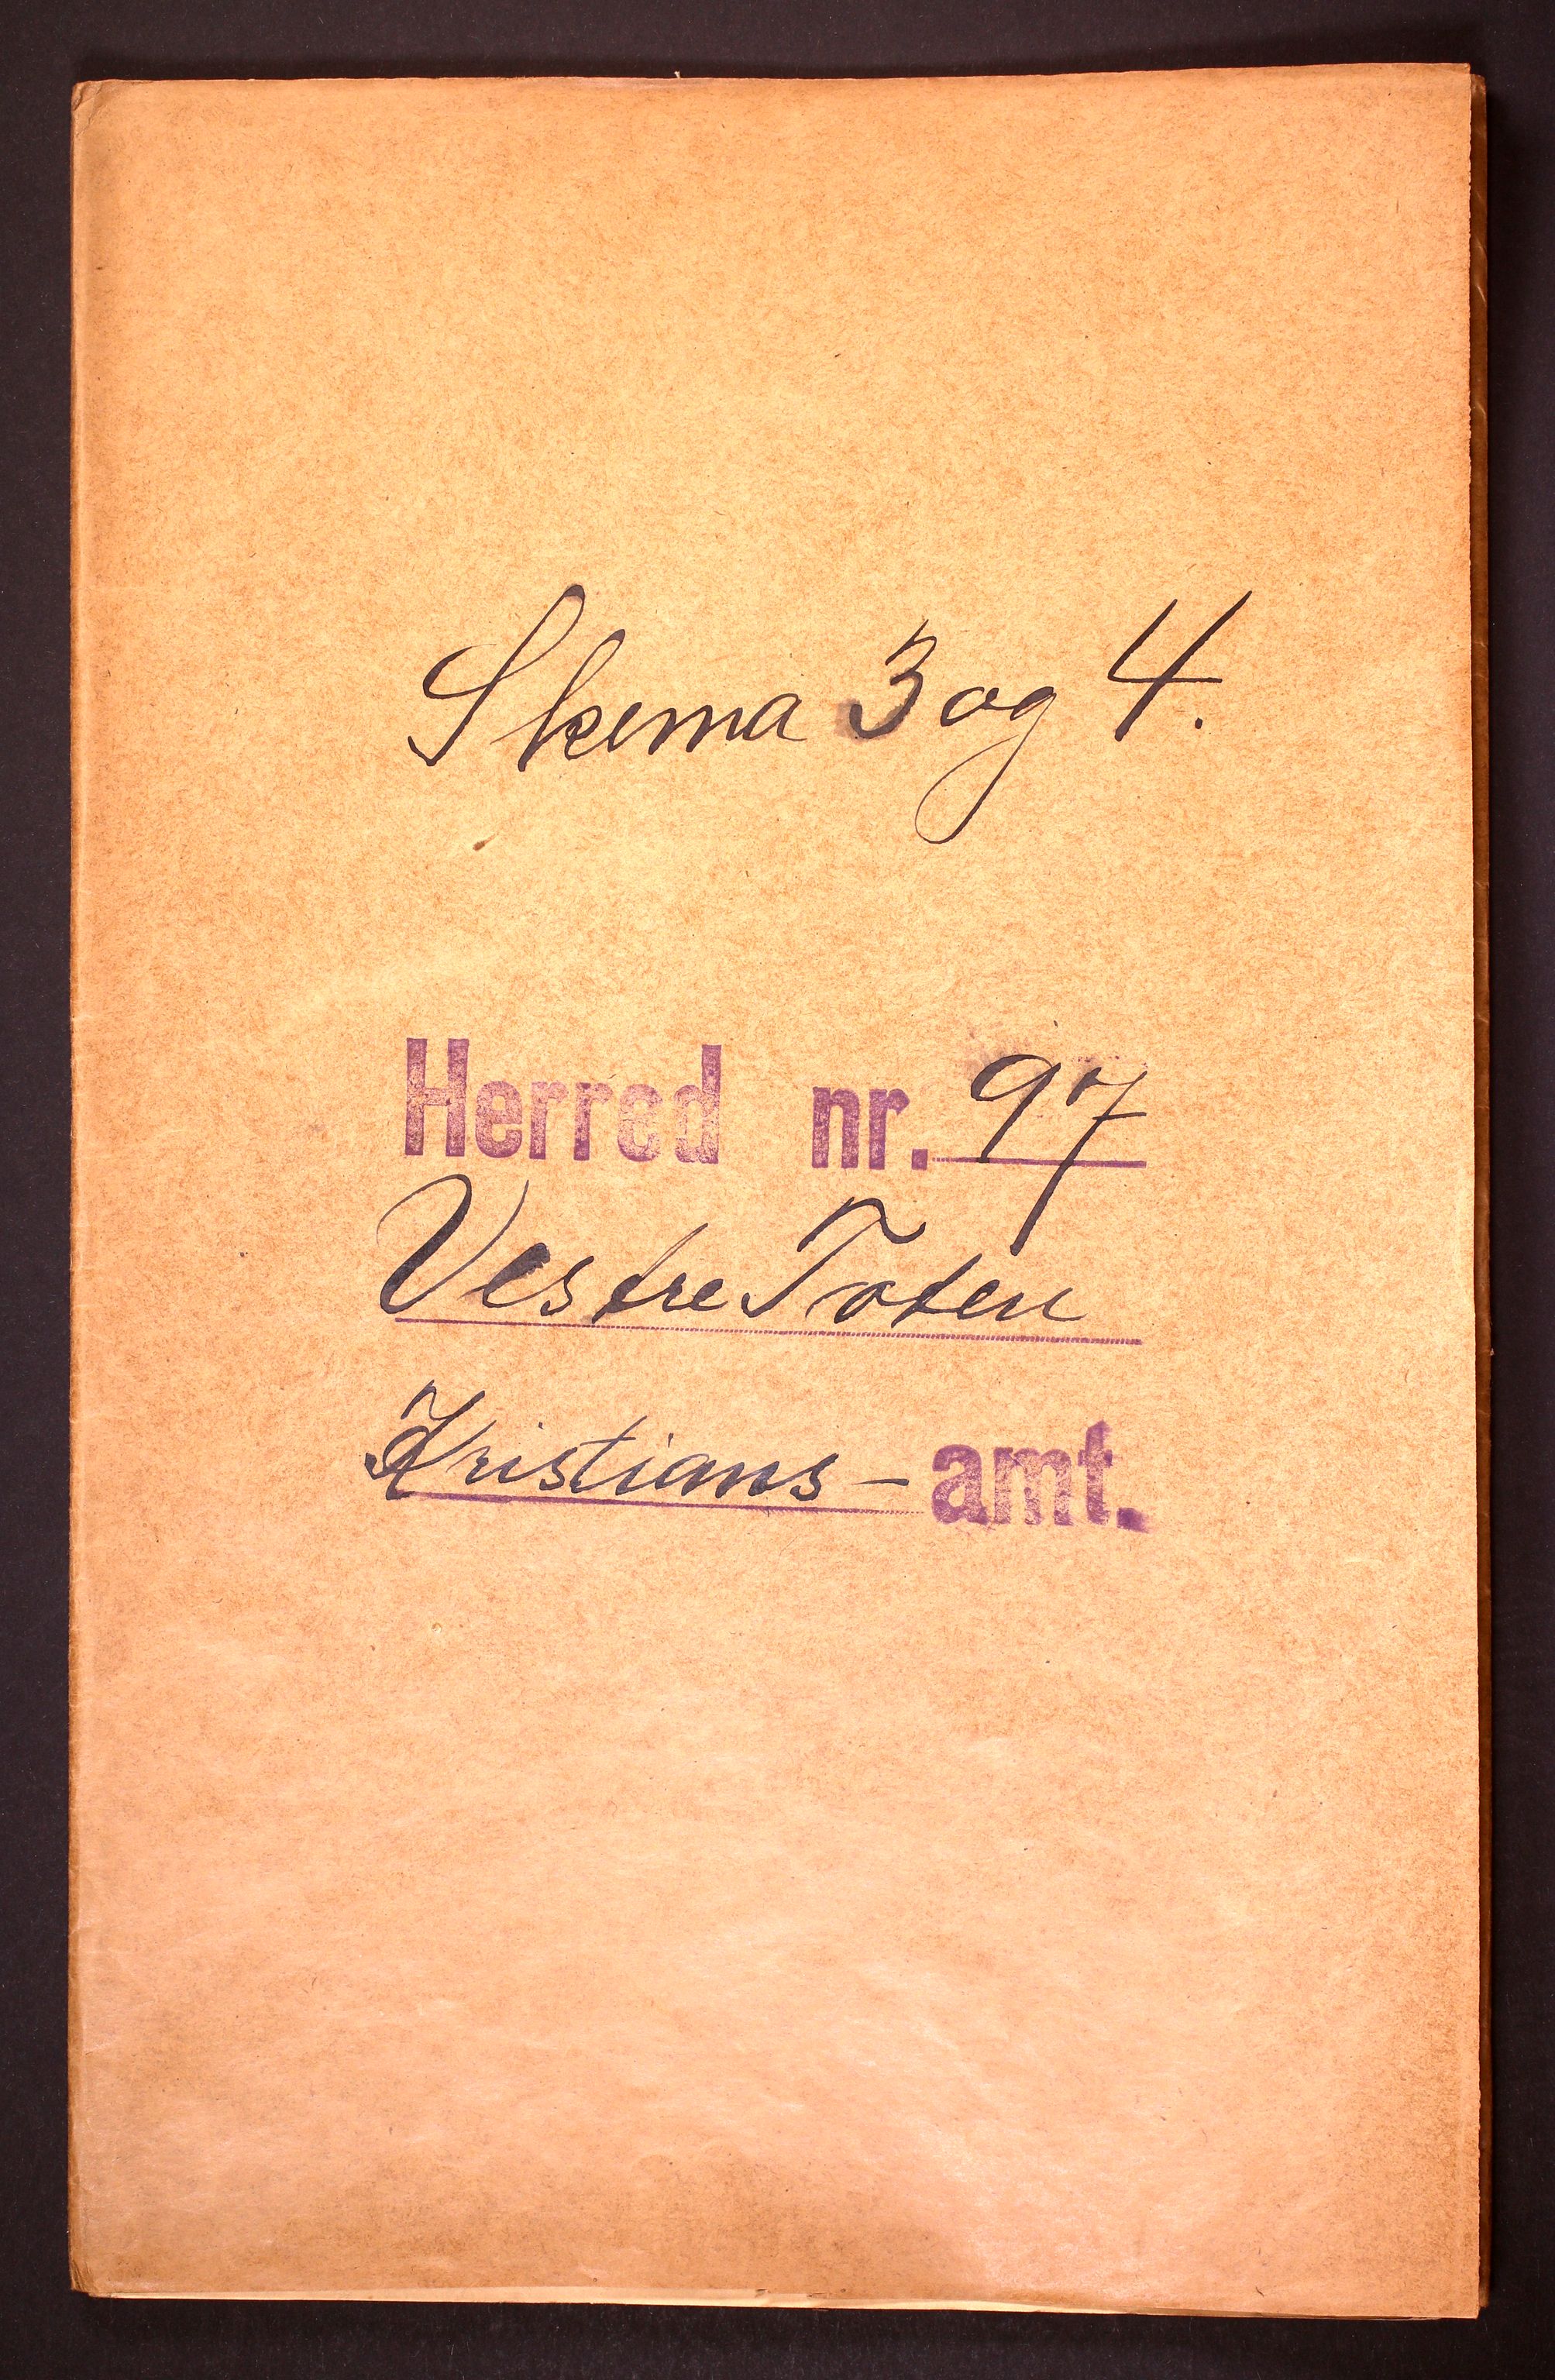 Skema 3 og 4.
Herred nr. 97
Vestre Toten
Kristians - amt.